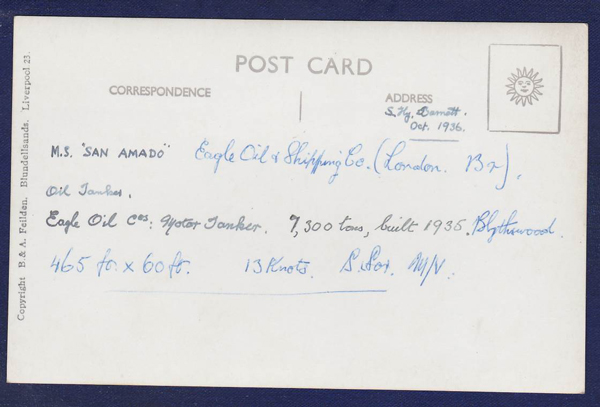 POST CARD
CORRESPONDENCE
ADDRESS
S. Hy.
Oct. 1936.
M.S. "SAN AMADO" Eagle Oil & Shipping Co. (London. Br).
Oil Tanker.
Eagle Oil Cos: Motor Tanker. 7,300 tons, built 1936. Blythswood.
465 ft. x 60 ft. 13 Knots. S. M/V.
Copyright B & A. Feilden. Blundellsands. Liverpool 23.